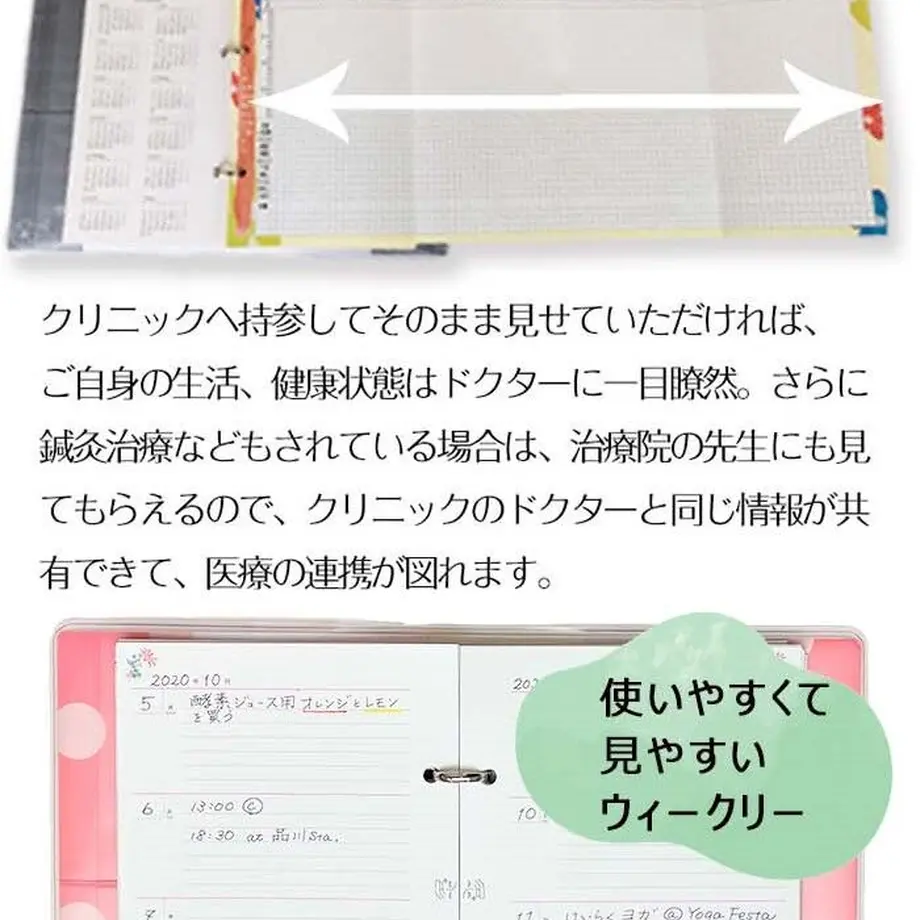 クリニックへ持参してそのまま見せていただければ、
ご自身の生活、健康状態はドクターに一目瞭然。さらに
鍼灸治療などもされている場合は、治療院の先生にも見
てもらえるので、クリニックのドクターと同じ情報が共
有できて、医療の連携が図れます。
2020年10月
5 酵素ジュース用オレンジとレモン
を買う
6 13:00 Ⓒ
18:30 at 品川Sta.
7
202
使いやすくて
見やすい
ウィークリー
10
11 けいらくヨガ @ Yoga Festa